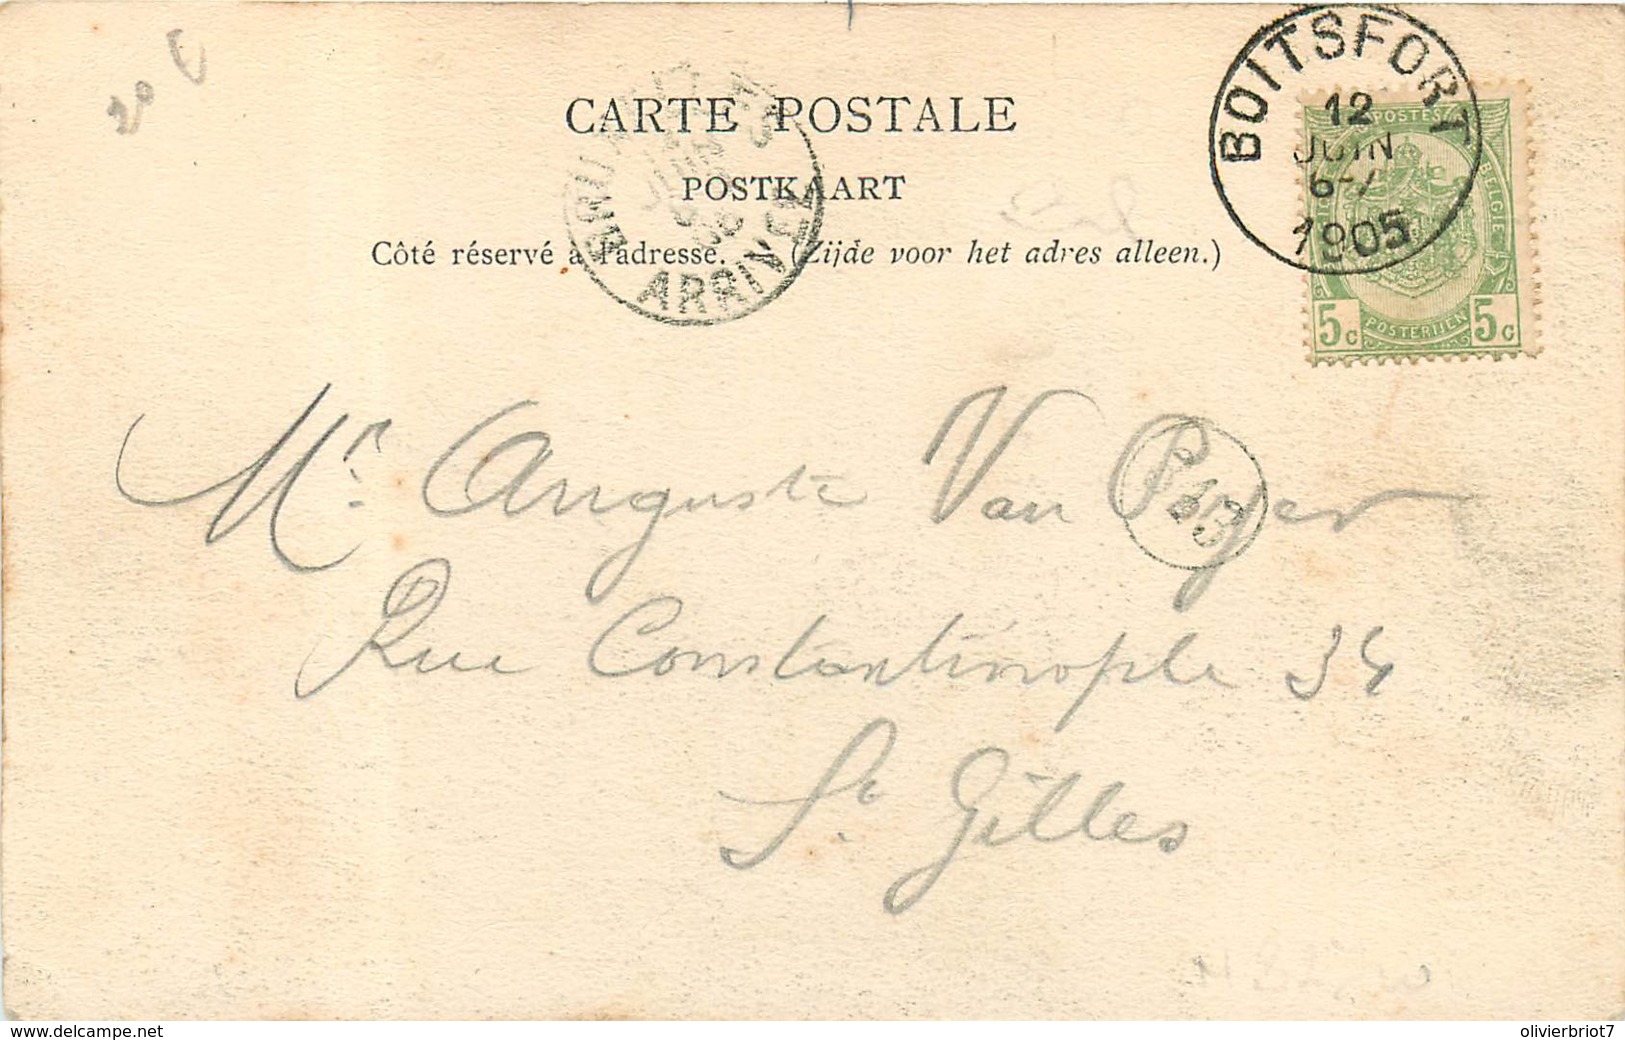 20 €
BOITSFORT
12
JUIN
6-7
1905
POSTES
BELGIE
5c POSTERIJEN 5c
CARTE POSTALE
POSTKAART
Côté réservé à l'adresse. — (Zijde voor het adres alleen.)
BRUXELLES
ARRIVÉE
Mr. Auguste Van
Rue Constantinople 34
St. Gilles
delcampe.net
olivierbriot7